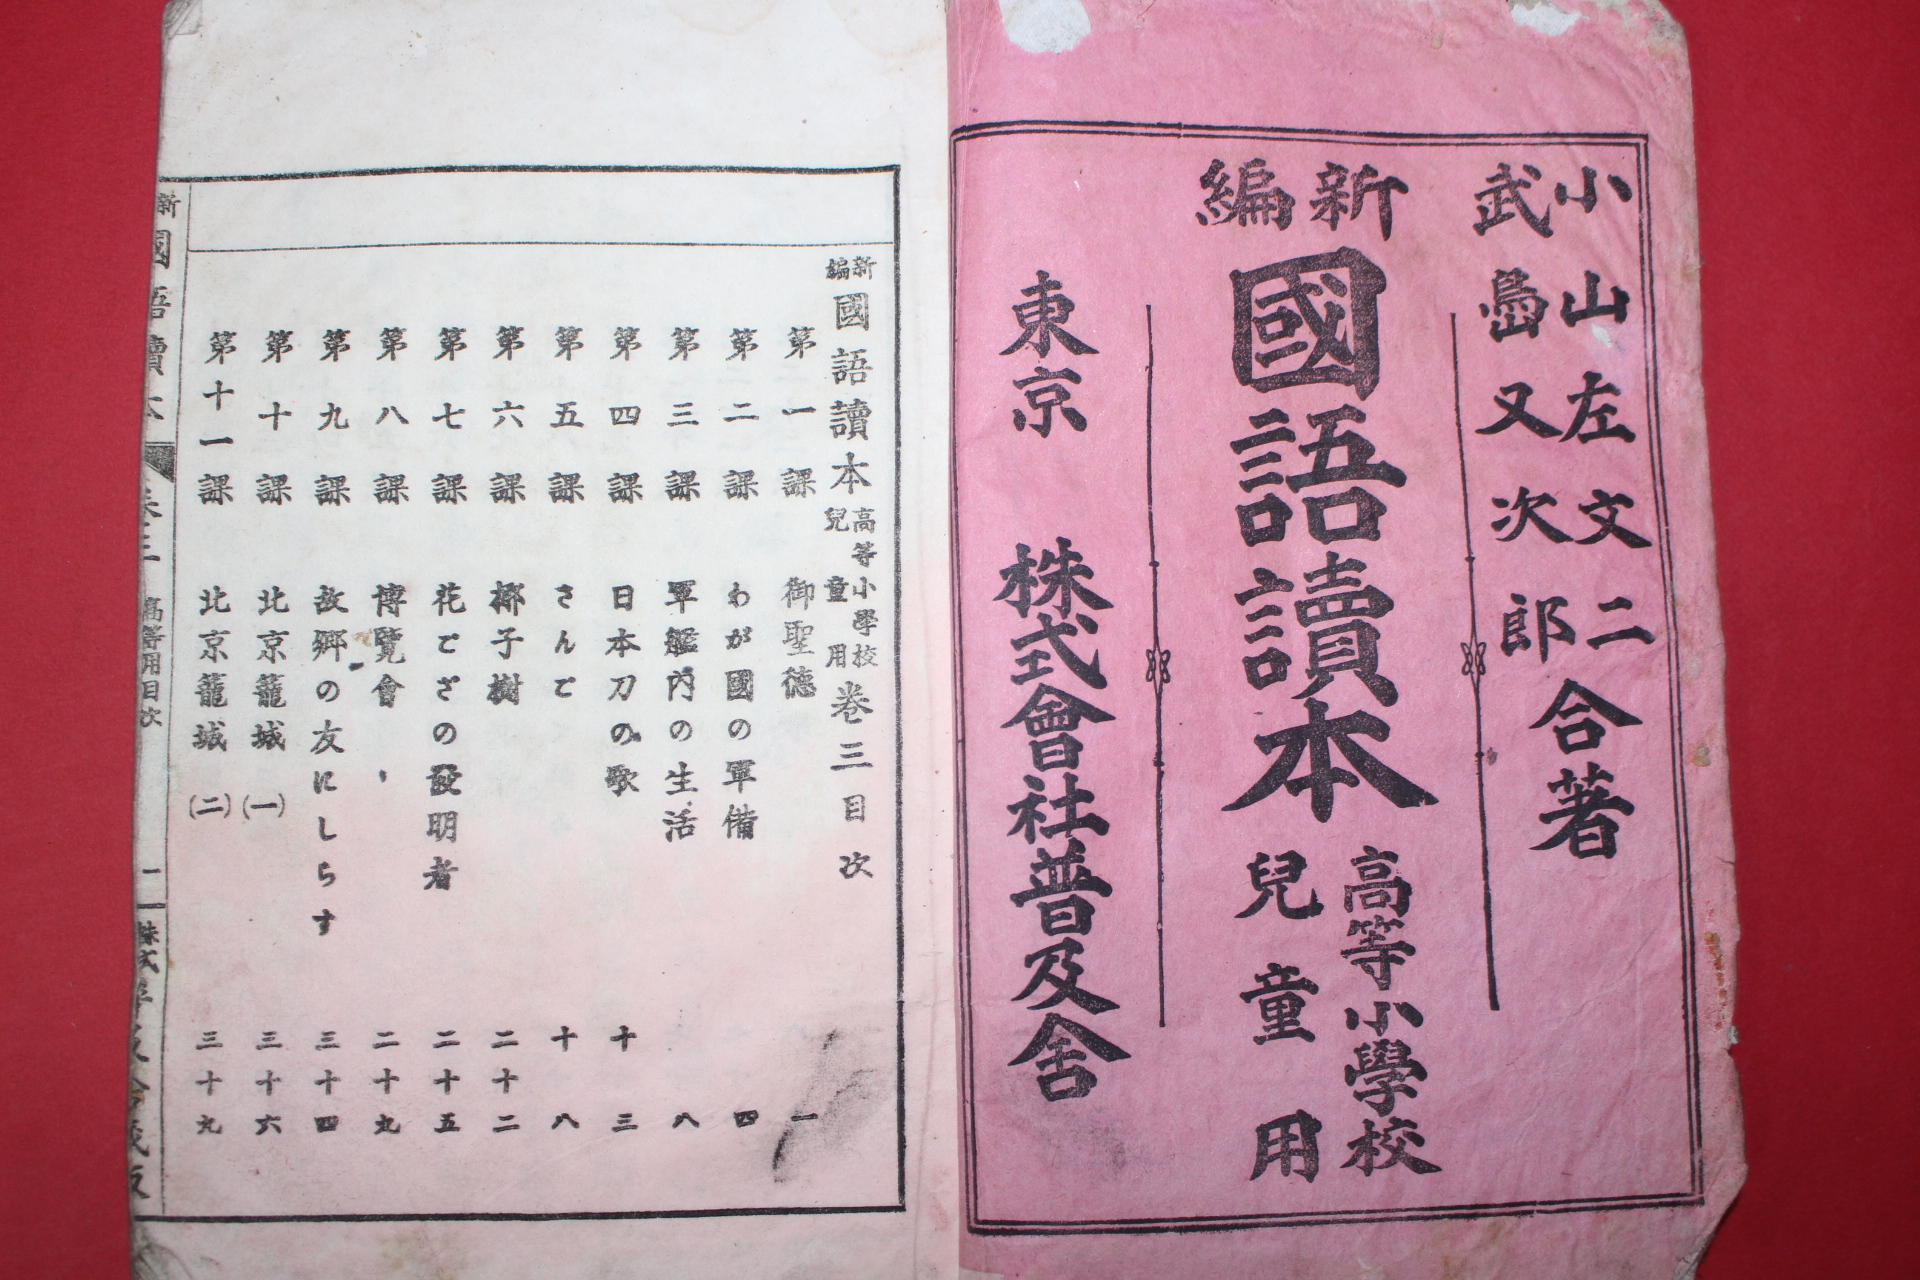 小山左文二
武島又次郎
合著
新編
國語讀本
高等小學校
兒童用
東京 株式會社普及舍
新編
國語讀本
高等小學校
兒童用
卷三目次
第一課 御聖德 一
第二課 わが國の軍備 四
第三課 軍艦内の生活 八
第四課 日本刀の歌 十三
第五課 さんご 十八
第六課 椰子樹 二十二
第七課 花ござの發明者 二十五
第八課 博覽會 二十九
第九課 故郷の友にしらす 三十四
第十課 北京籠城(一) 三十六
第十一課 北京籠城(二) 三十九
新 國語讀本 卷三 高等用目次 二 株式